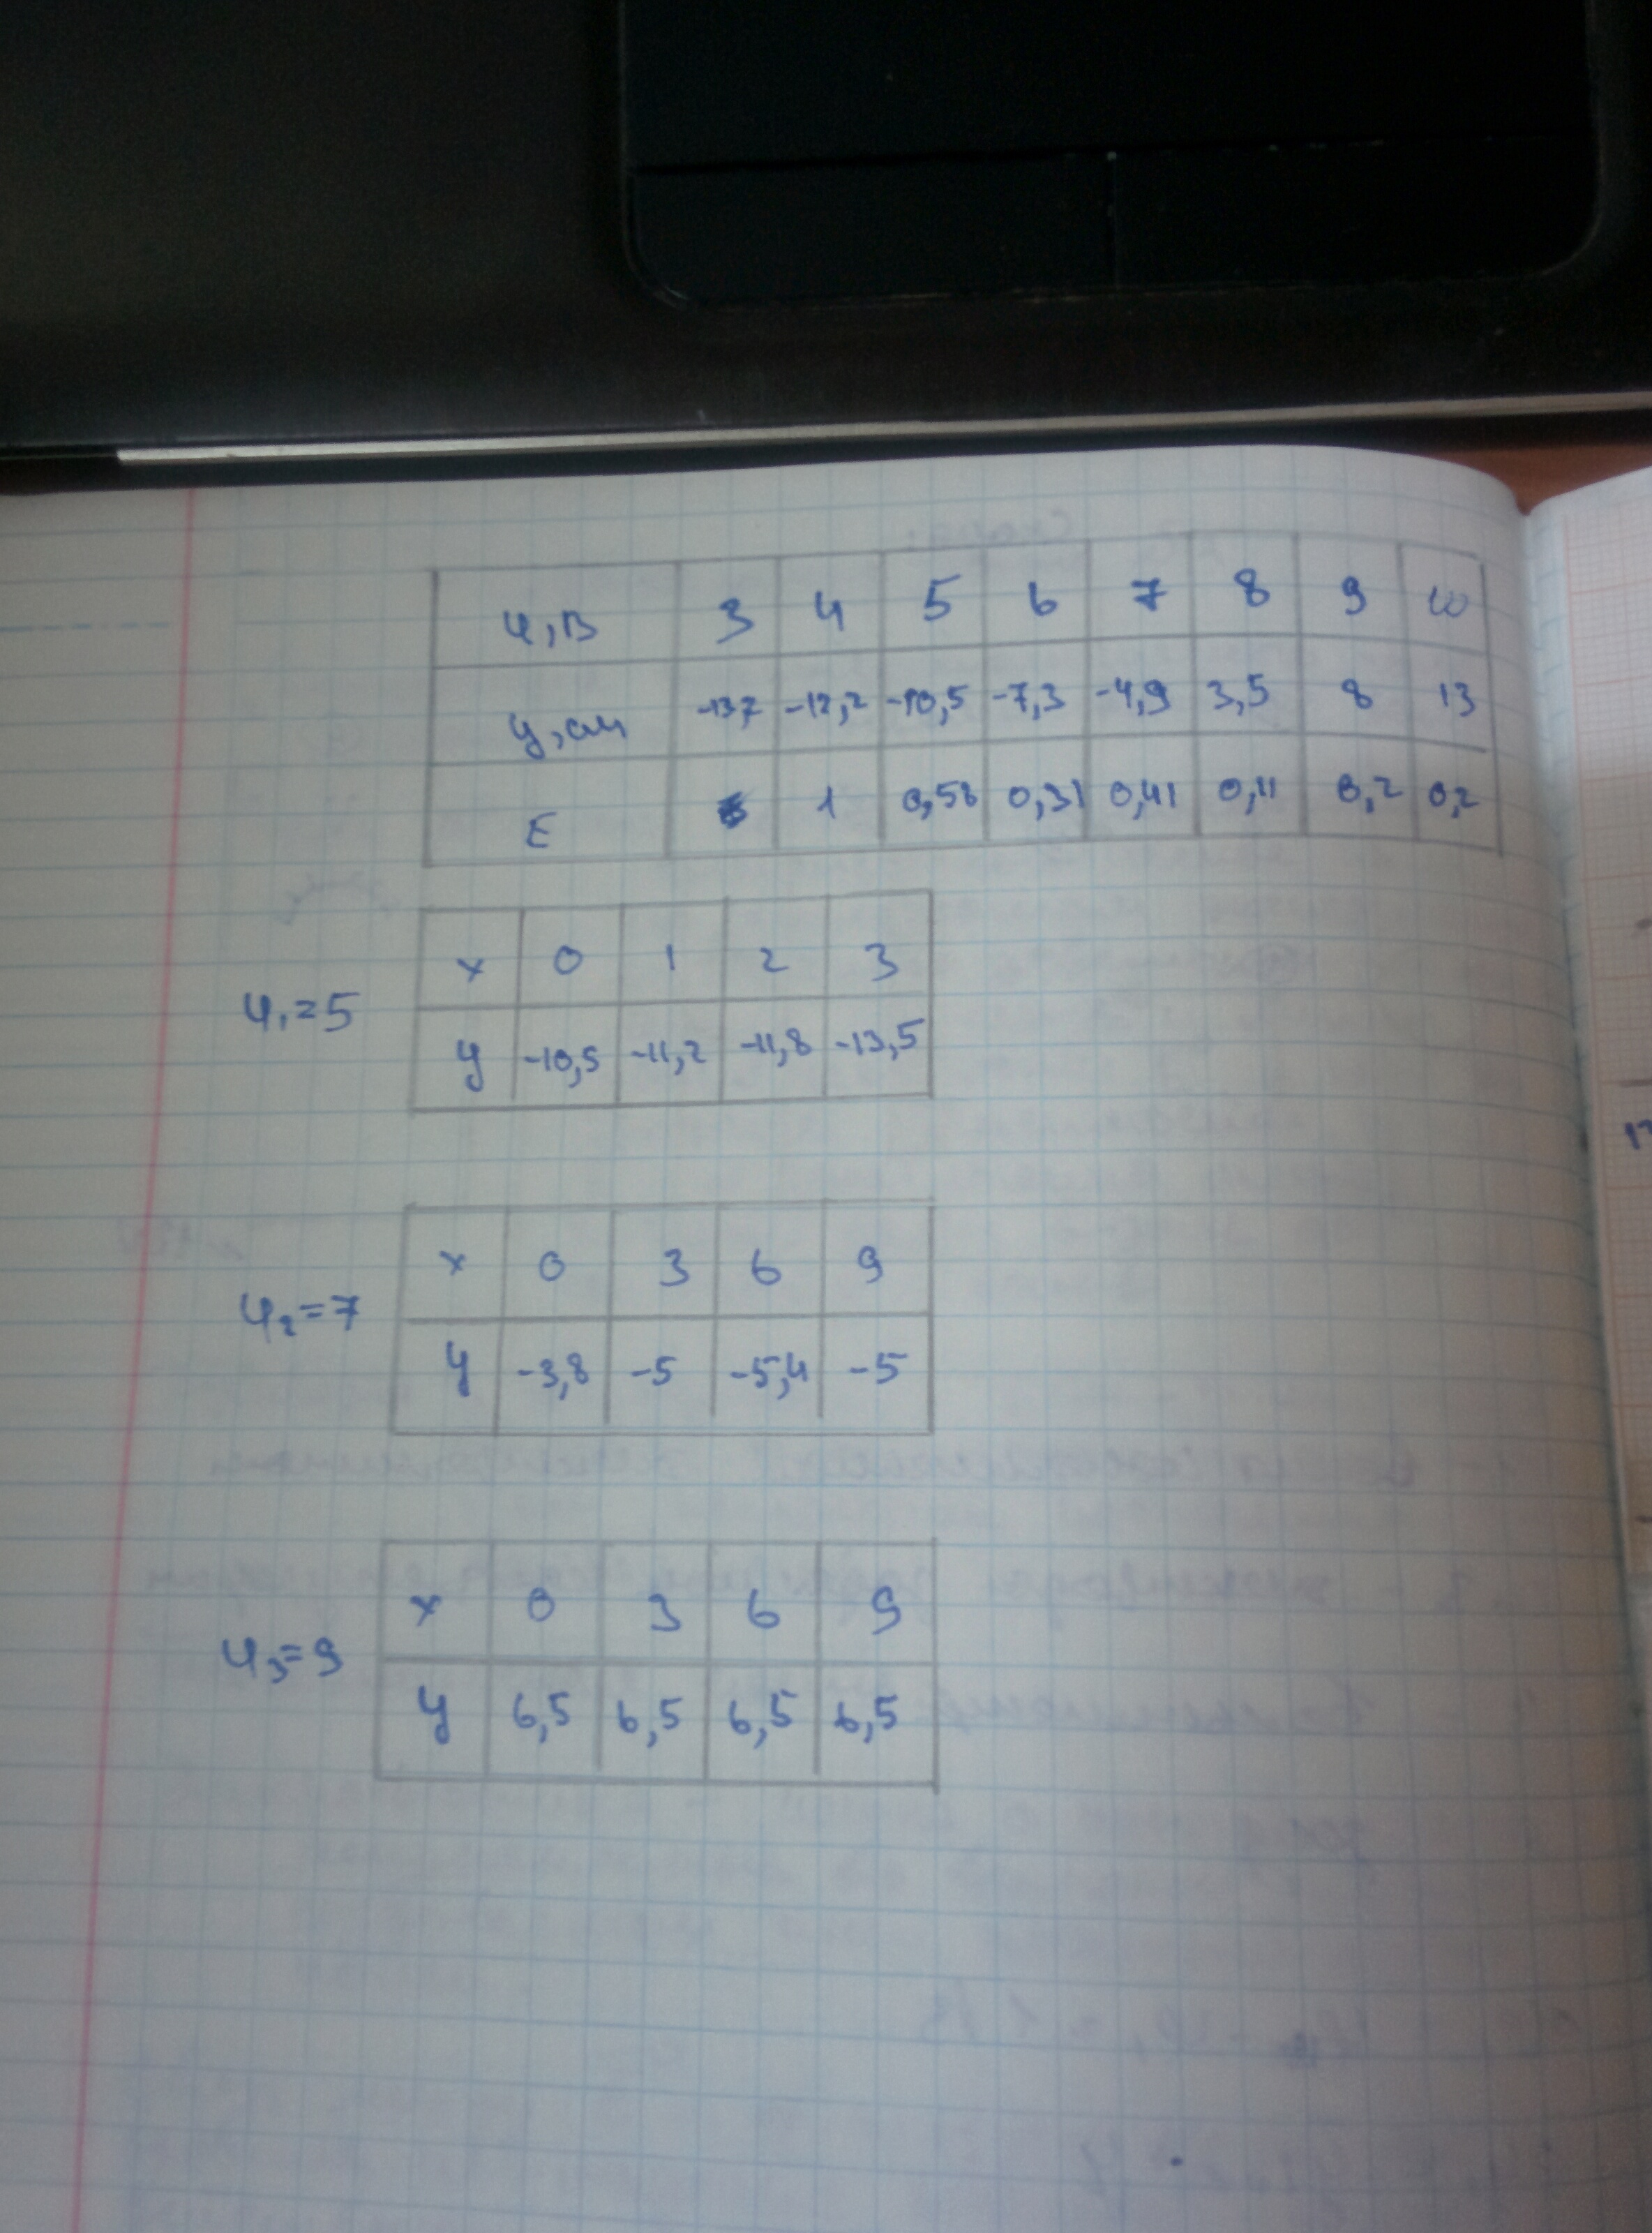 φ, В 3 4 5 6 7 8 9 10
y, см -13,2 -12,2 -10,5 -7,3 -4,9 3,5 8 13
E 1 0,58 0,31 0,41 0,11 0,2 0,2
x 0 1 2 3
φ₁=5
y -10,5 -11,2 -11,8 -13,5
x 0 3 6 9
φ₂=7
y -3,8 -5 -5,4 -5
x 0 3 6 9
φ₃=9
y 6,5 6,5 6,5 6,5